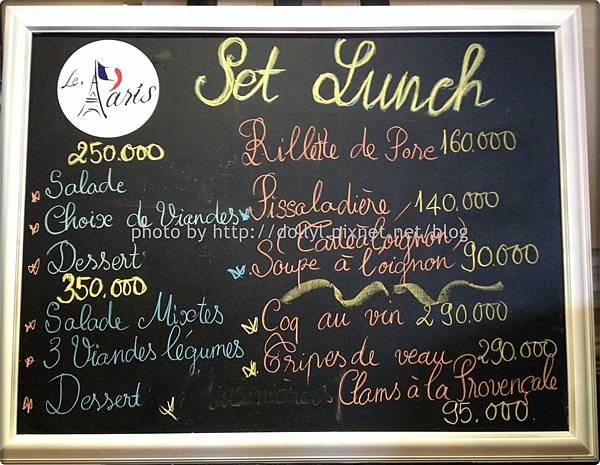 Le Paris
Set Lunch
250.000
Salade
Choix de Viandes
Dessert
350.000
Salade Mixtes
3 Viandes légumes
Dessert
Rillette de Porc 160.000
Pissaladière 140.000
(Tarte à l'oignon)
Soupe à l'oignon 90.000
Coq au vin 290.000
Tripes de veau 290.000
Clams à la Provençale
95.000
photo by http://dollyl.pixnet.net/blog